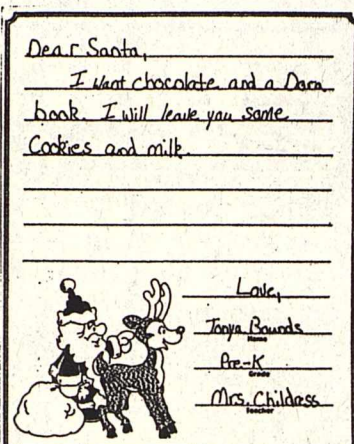 Dear Santa,
I want chocolate and a Dora
book. I will leave you some
Cookies and milk.
Love,
Tonya Bounds
Name
Pre-K
Grade
Mrs. Childress
Teacher